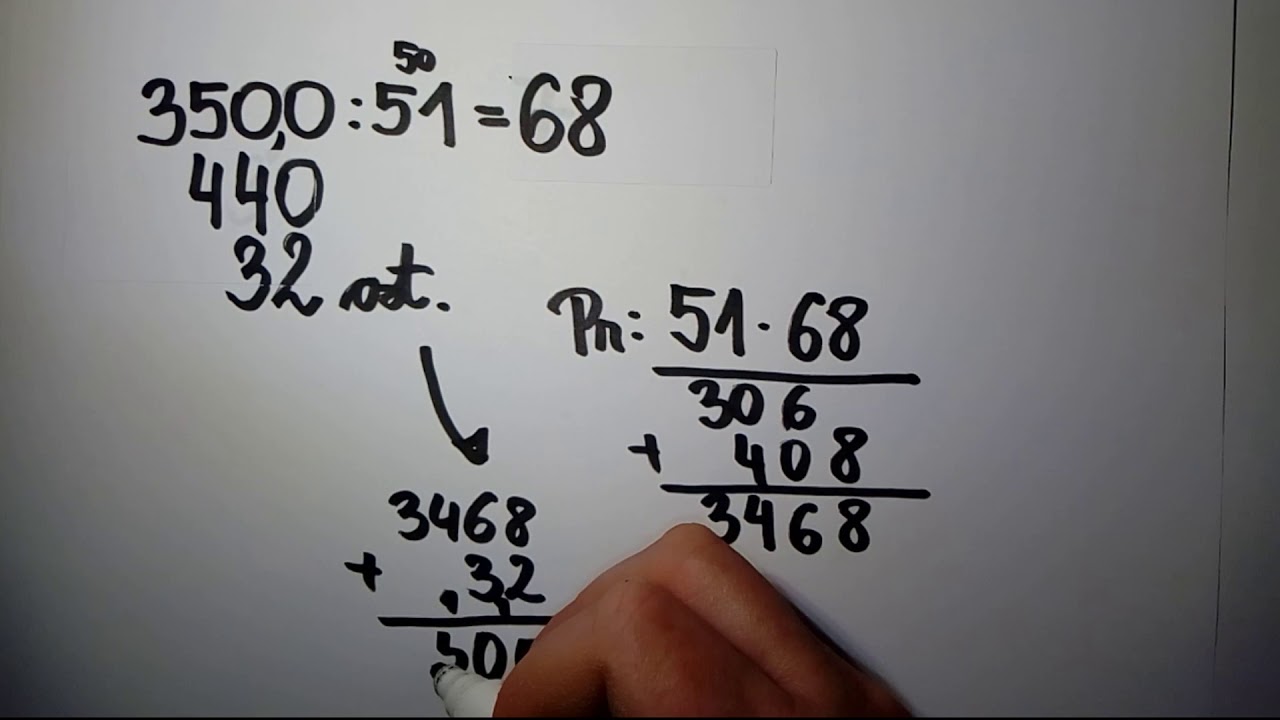 50
350,0:51=68
440
32 ost.
Pr: 51·68
306
+ 408
3468
3468
+ .3,2
500